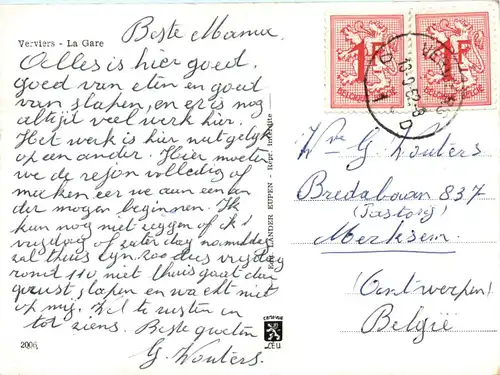 Verviers - La Gare
Beste Mama
Alles is hier goed.
goed van eten en goed
van slapen, en er is nog
altijd veel werk hier.
Het werk is hier net gelijk
op een ander. Hier moeten
we de rejon volledig af
maken eer we aan een an
der mogen beginnen. Ik
kan nog niet zeggen of ik
vrijdag of zaterdag namiddag
zal thuis zijn. zoo dus vrijdag
rond 11 niet thuis gaat dan
gerust slapen en wacht niet
op mij. tot ziens. Beste groeten
G. Wouters.
2006
EDIT. LANDER EUPEN - Repr. interdite
CEU
1F
BELGIE-BELGIQUE
1F
BELGIE-BELGIQUE
Wwe G. Wouters
Bredabaan 837
(Pastorij)
Merksem
(Antwerpen)
België